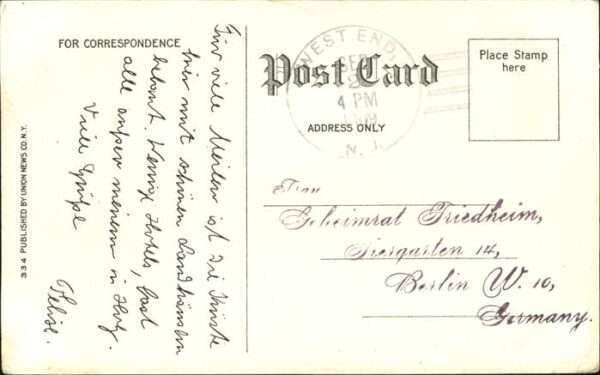 FOR CORRESPONDENCE
Für viele Meilen ist die Küste
hier mit schönen Landhäusern
bebaut. Wenige Hotels, fast
alle außer meinem in
Viele Grüße
Felix.
334 PUBLISHED BY UNION NEWS CO. N.Y.
WEST END,
SEP
4 PM
N. J.
Post Card
ADDRESS ONLY
Place Stamp
here
Frau
Geheimrat Friedheim,
Tiergarten 14,
Berlin W. 10,
Germany.